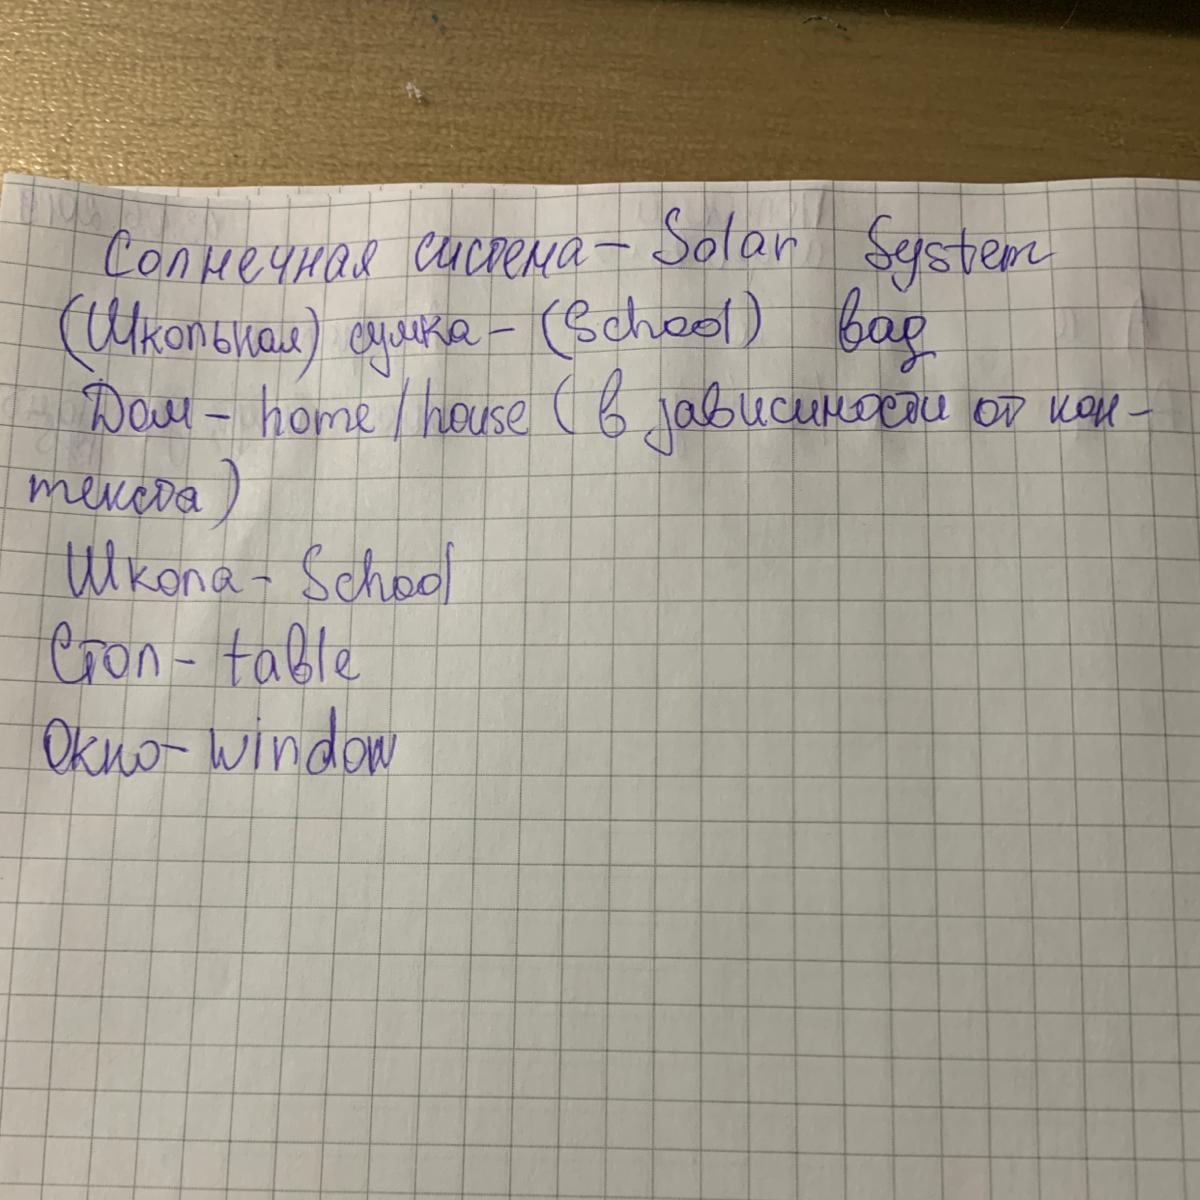 Солнечная система - Solar System
(Школьная) сумка - (School) bag
Дом - home/house (в зависимости от кон-
текста)
Школа - School
Стол - table
Окно - window